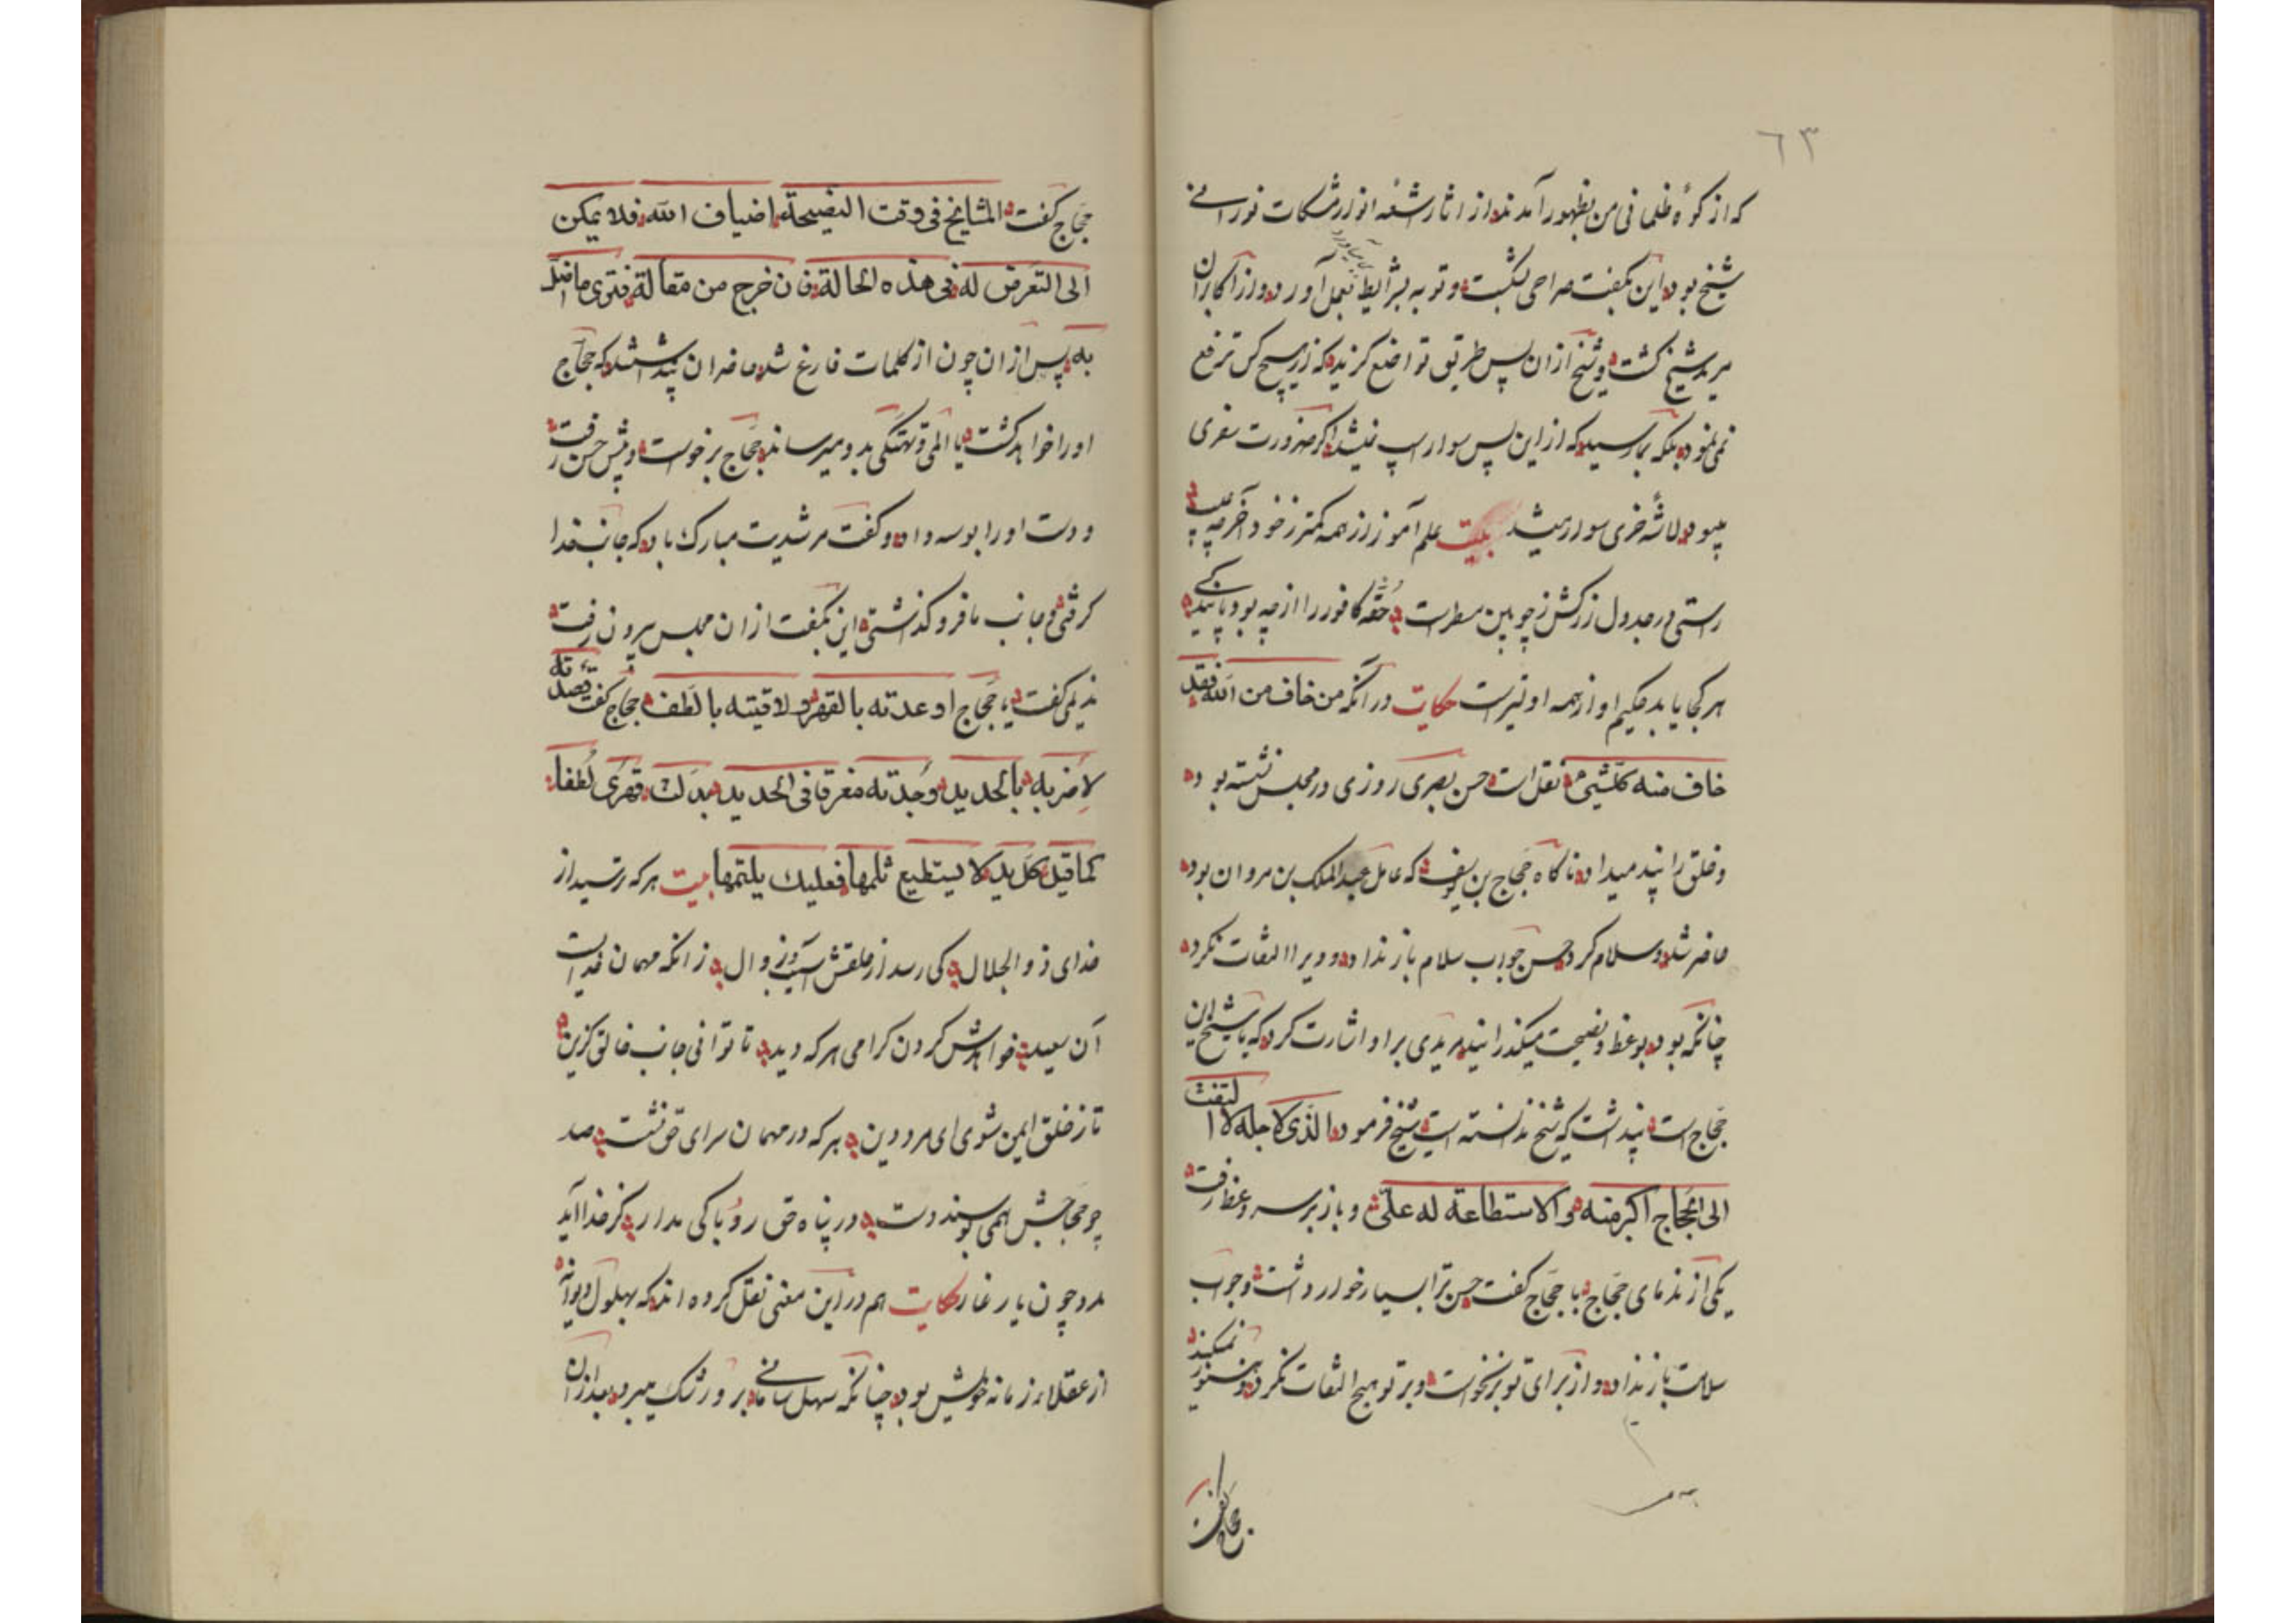 ٦٣
که از کوهٔ ظلمانی من بظهور آمدند از اثار شعهٔ انوار مشکات نورانی
شیخ بود این بگفت صراحی بشکست و توبه بشرایط بعمل آورد و از اکابران
مرید شیخ گشت و شیخ ازان پس طریق تواضع گزید که از هیچ کس ترفع
نمی نمود بلکه که از این پس سوار اسپ نمیشد اگر ضرورت سفری
میبود لاشهٔ خری سوار میشد بیت علم آموز از همه کمتر ز خود آخر چه عیب
راستی در جدول زرکش ز چوبین مسطرست حقهٔ کافور را از چه بود
هر کجا یابد حکیم او از همه اولیترست حکایت در آنکه من خاف من الله فقد
خاف منه کل شیئ نقل است حسن بصری روزی در مجلس نشسته بود
و خلق را پند میداد ناکاه حجاج بن یوسف که عامل عبد الملک بن مروان بود
حاضر شد و سلام کرد حسن جواب سلام باز نداد و ویرا التفات نکرد
چنانکه بود بوعظ و نصیحت میگذرانید مریدی برو اشارت کرد که یا شیخ این
حجاج است پنداشت که شیخ ندانسته است شیخ فرمود الذی لاجله لا التفت
الی الحجاج اکبر منه و لا استطاعة له علی و باز بر سر وعظ رفت
یکی از ندمای حجاج با حجاج گفت حسن ترا بسیار خوار داشت و جواب
سلامت باز نداد و از برای تو برنخواست و بر تو هیچ التفات نکرد و هنوز نمیکند
حجاج گفت
حجاج گفت المشایخ فی وقت النصیحة اضیاف الله فلا یمکن
الی التعرض له فی هذه الحالة فان خرج من مقالة فتری ما افعل
به پس ازان چون از کلمات فارغ شد حاضران پنداشتند که حجاج
اورا خواهد کشت یا المی و هتکی بدو میرساند حجاج برخواست و پیش حسن رفت
و دست اورا بوسه داد و گفت مرشدیت مبارک باد که جانب خدا
گرفتی و جانب ما فرو گذاشتی این بگفت ازان مجلس بیرون رفت
ندیمی گفت یا حجاج اوعدته بالقهر و لاقیته بالطف حجاج گفت قصدته
لاضربه بالحدید وجدته مغرقا فی الحدید بدلت قهری لطفا
کما قیل کل ید لا یستطیع ثلمها فعلیک یلثمها بیت هر که ترسید از
خدای ذو الجلال کی رسد از خلقش آسیب و زوال زانکه مهمان خداست
آن سعید خواهدش کردن گرامی هر که دید تا توانی جانب خالق گزین
تا ز خلق ایمن شوی ای مرد دین هر که در مهمان سرای حق نشست صد
چو حجاجش همی بوسند دست در پناه حق رو باکی مدار کز خدا آید
مدد چون یار غار حکایت هم در این معنی نقل کرده اند که بهلول دیوانه
از عقلاء زمانه خویش بود چنانکه سهل برو رشک میبرد بعد ازان